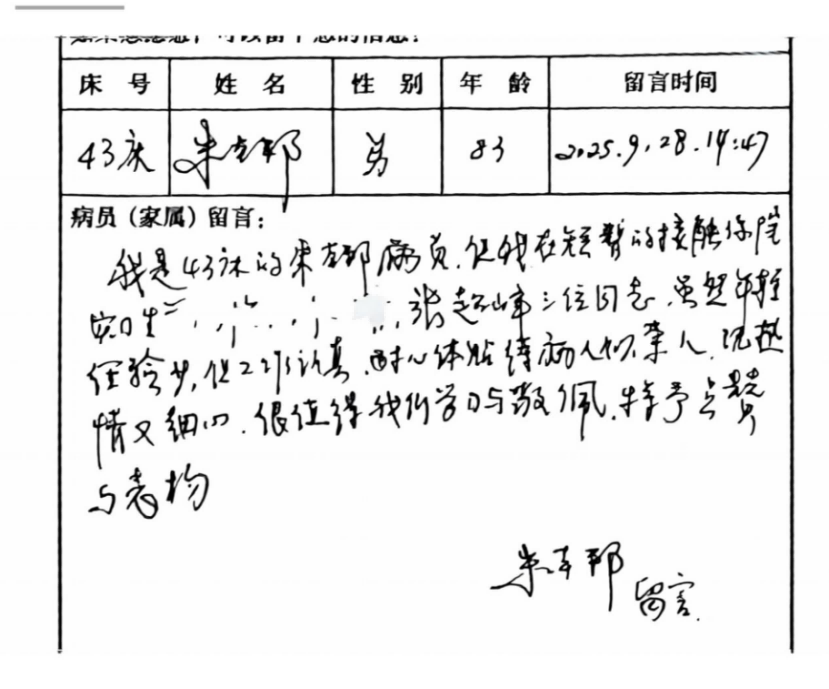 床号 姓名 性别 年龄 留言时间
43床 朱 邦 男 83 2025.9.28.14:47
病员（家属）留言：
我是43床的朱 邦病员，但我在短暂的接触你院
实习生 张超峰三位同志，虽然年轻
经验少，但工作认真，耐心体贴待病人似亲人，既热
情又细心，很值得我们学习与敬佩，特予点赞
与表扬
朱 邦 留言